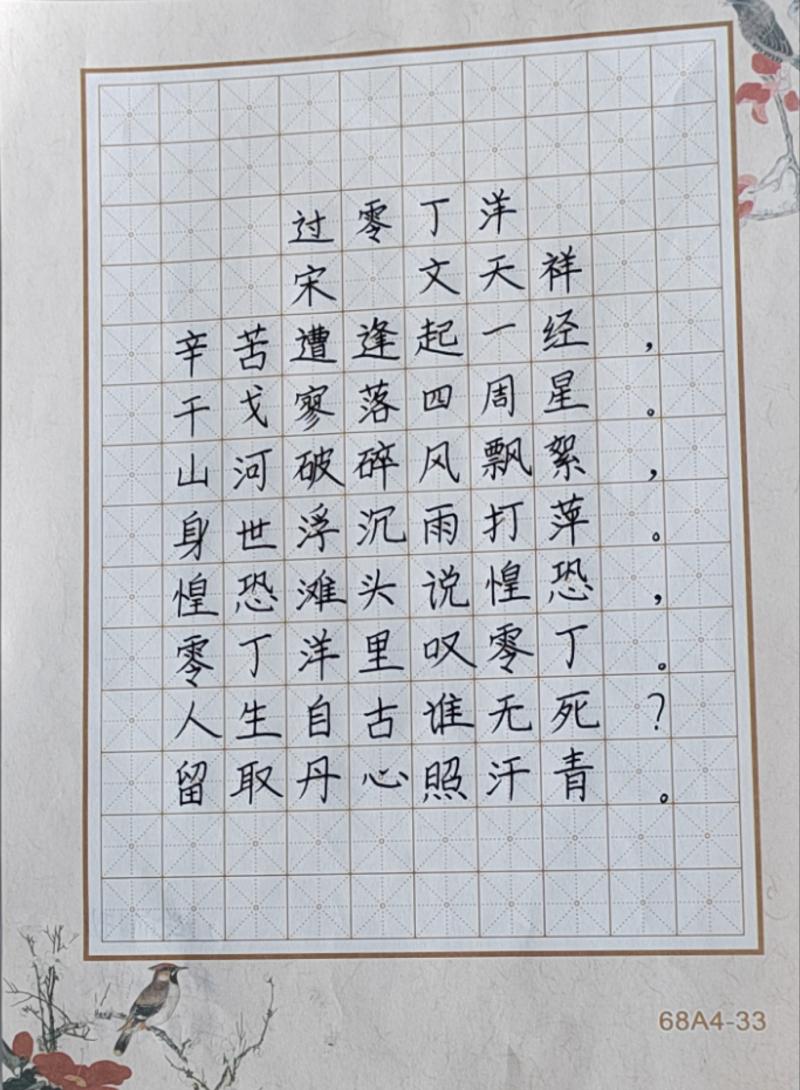 过零丁洋
宋 文天祥
辛苦遭逢起一经，
干戈寥落四周星。
山河破碎风飘絮，
身世浮沉雨打萍。
惶恐滩头说惶恐，
零丁洋里叹零丁。
人生自古谁无死？
留取丹心照汗青。
68A4-33